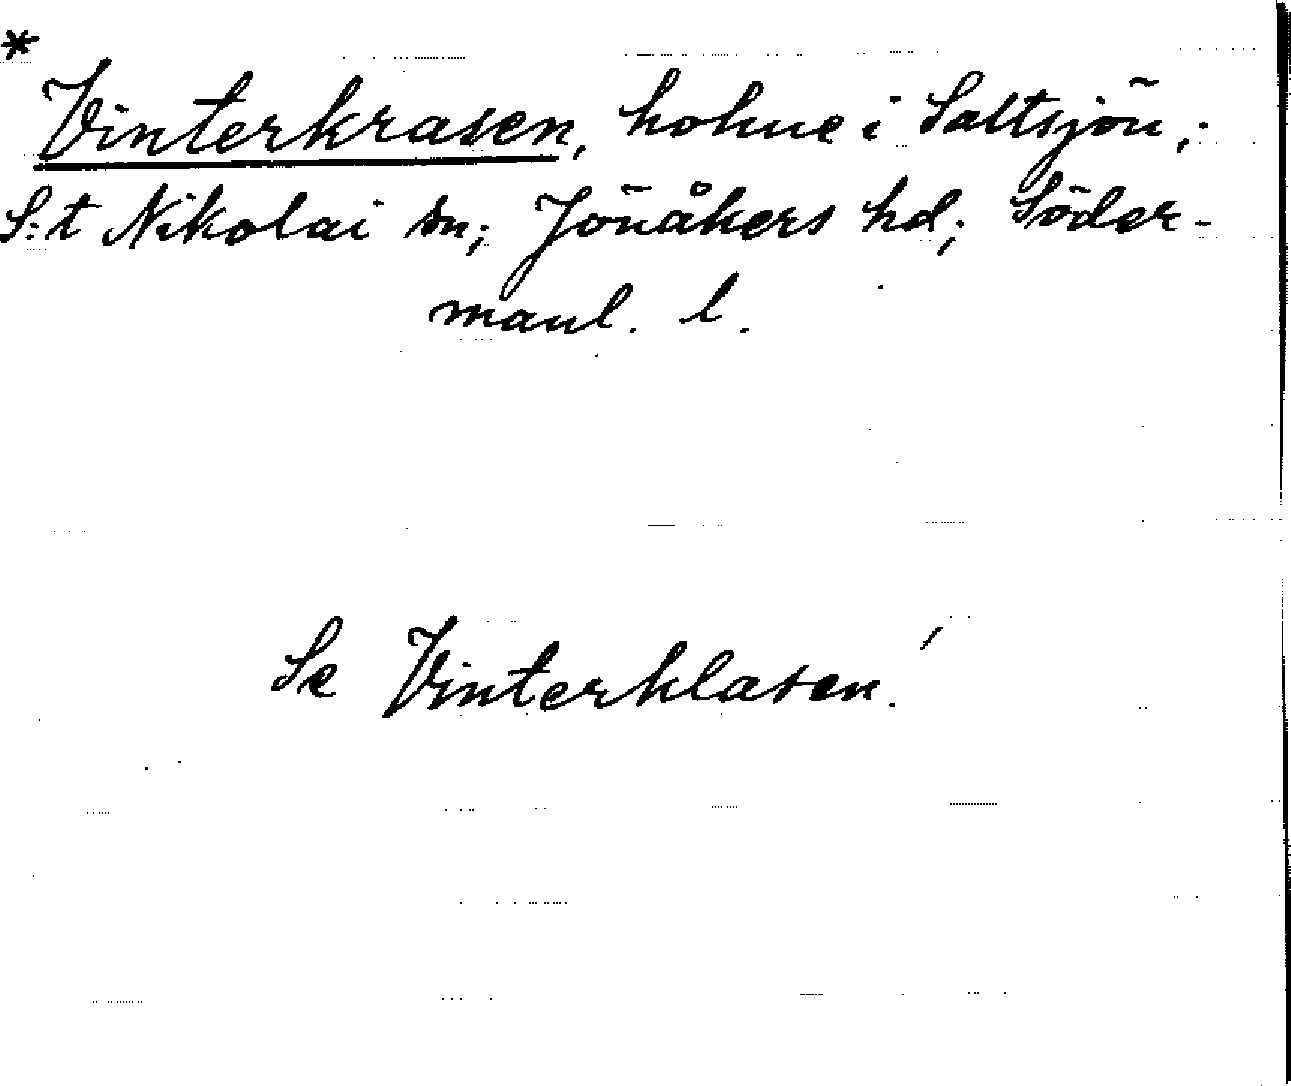 *
Vinterkrasen, holme i Saltsjön;
S:t Nikolai sn; Jönåkers hd; Söder-
manl. l.
Se Vinterklasen!